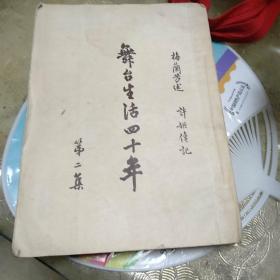 梅蘭芳述
許姬傳記
舞台生活四十年
第二集